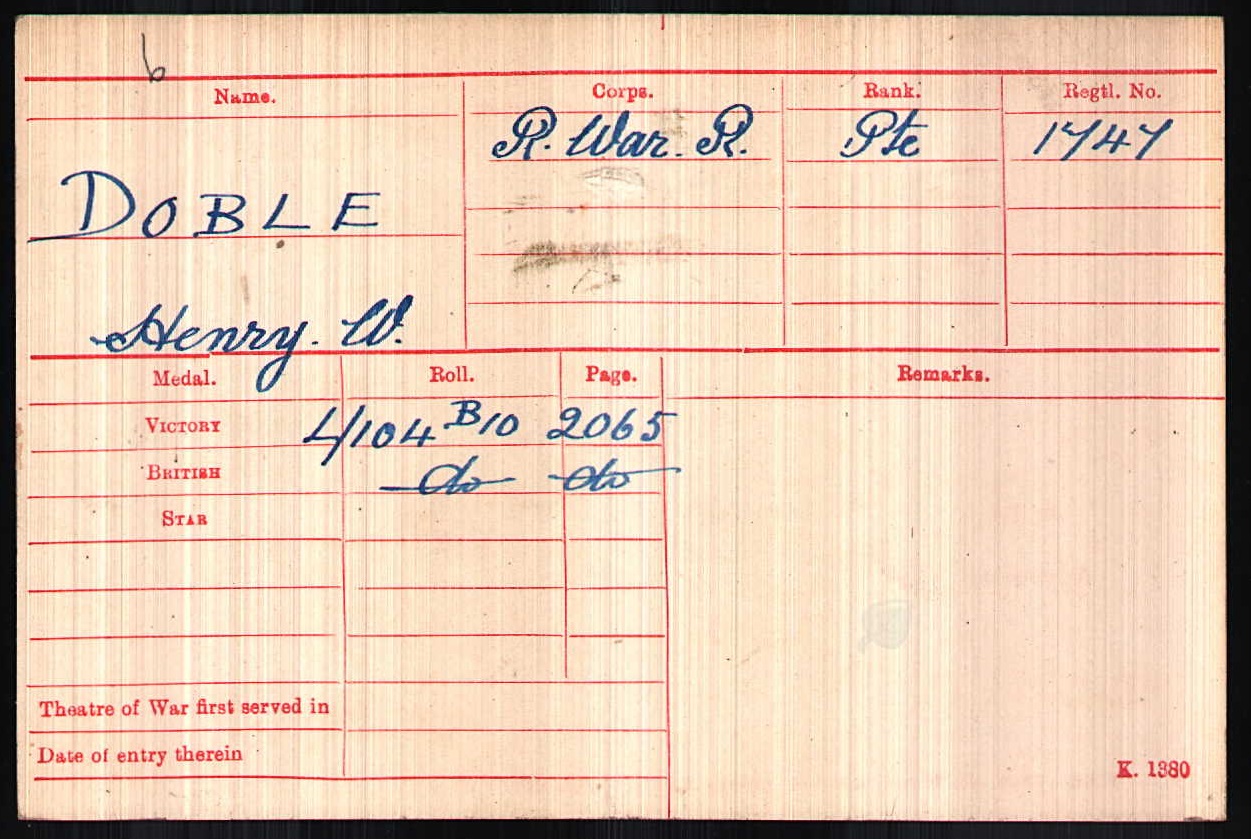 6
Name. Corps. Rank. Regtl. No.
R. War. R. Pte 1747
DOBLE
Henry. W.
Medal. Roll. Page. Remarks.
VICTORY L/104 B10 2065
BRITISH do do
STAR
Theatre of War first served in
Date of entry therein
K. 1380